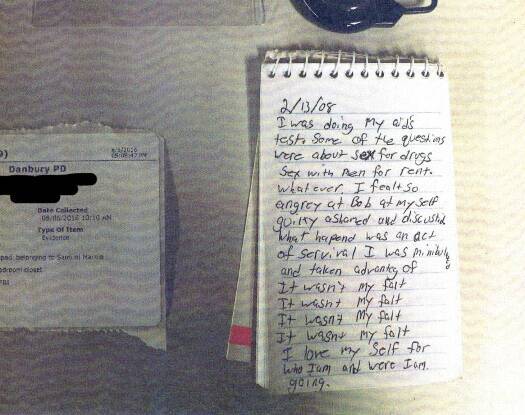 9)
6/9/2016
Danbury PD
Date Collected
08/05/2016 10:10 AM
Type of Item
Evidence
pad belonging to
droom closet
FBI
2/13/08
I was doing My aids
test. Some of the questions
were about sex for drugs
Sex with men for rent.
whatever. I fealt so
angrey at Bob at my self
guilty ashamed and
what hapend was an act
of servival I was
and taken advanteg of
It wasn't My falt
It wasnt My falt
It wasnt My falt
It wasnt My falt
I love my Self for
who Iam and were Iam
going.